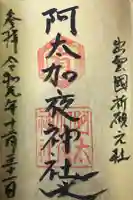 出雲國祈願元社
阿太加夜神社
参拝 令和元年十二月三十一日